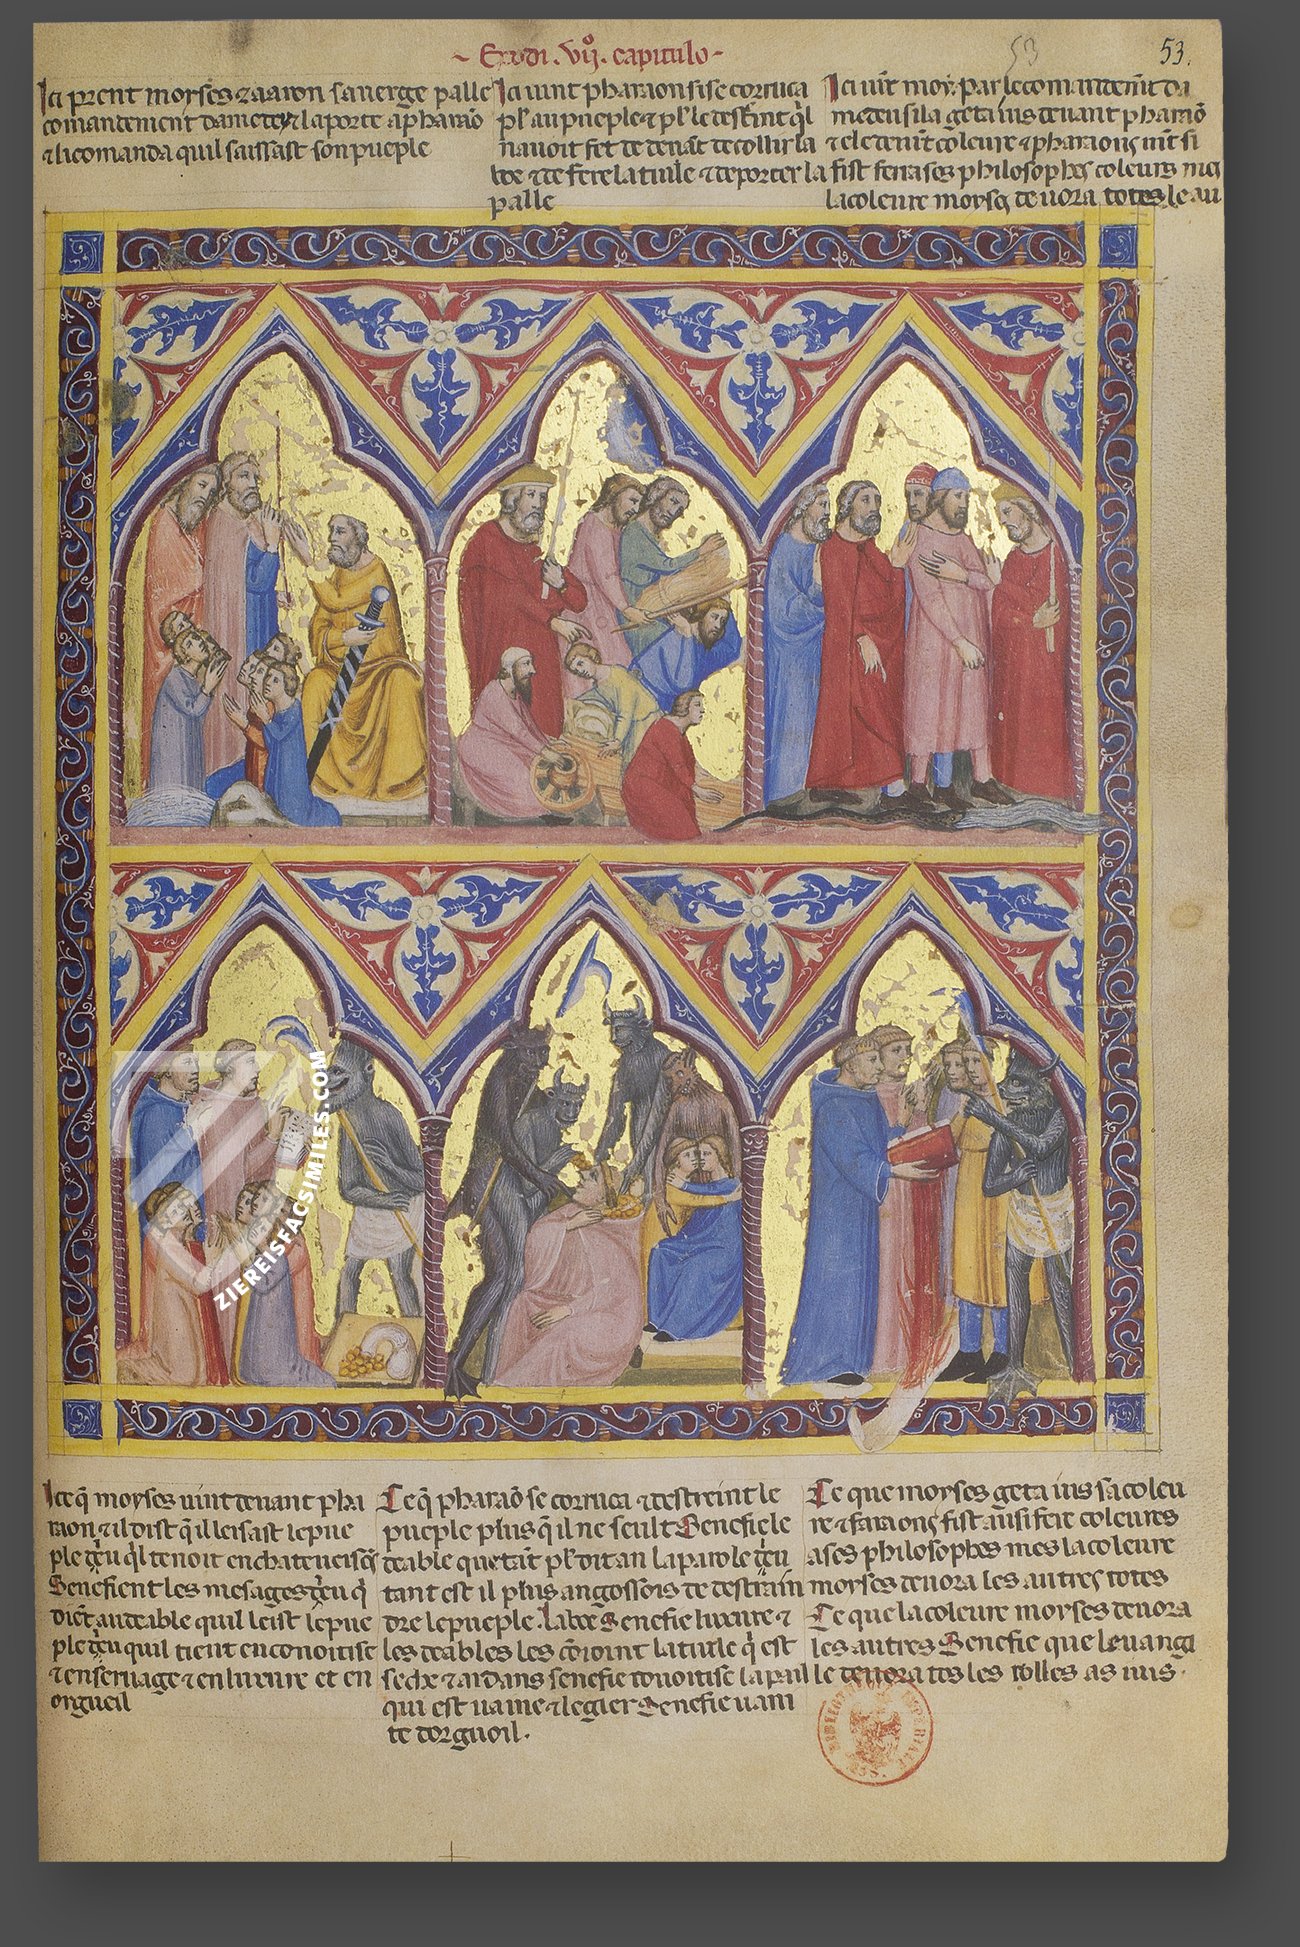 Exodi . vij . capitulo
53
53.
Ici prent moyses ⁊ aaron sa uerge par le
comandement dame
⁊ la porte a pharao
⁊ li comanda quil laissast son pueple
Ici uint pharaon si se corruca
plꝰ au pueple ⁊ plꝰ le
nauoit fet de deuāt de collir la
boe ⁊ de fere la tiule ⁊ de porter la
palle
Ici uīt moy. par le comandem̄t da
me deu si la geta ius deuant pharaō
⁊ ele deuīt coleure ⁊ pharaons
fist fere a ses philosophes coleurs mes
la coleure moyses deuora totes le au
Ice q̄ moyses uint deuant pha
raon ⁊ il dist q̄ il lessast le pue
ple
Senefient les mesages
dient au deable quil lest le pue
ple quil tient en conoitise
⁊ en seruage ⁊ en luxure et en
orgueil
Ce q̄ pharaō se corruca ⁊ destreint le
pueple plus q̄ il ne seult Senefie le
deable que tāt plꝰ ot an la parole
tant est il plus angossois de destrain
dre le pueple. la boe Senefie luxure ⁊
les deables les la tiule q̄ est
seche ⁊ senefie couoitise la pail
qui est uaine ⁊ legier Senefie uani
te dorguoil.
Ce que moyses geta ius sa coleu
re ⁊ faraons fist ausi fere coleures
a ses philosophes mes la coleure
moyses deuora les autres totes
Ce que la coleure moyses deuora
les autres Senefie que leuangi
le deuora tos les
ZIEREISFACSIMILES.COM